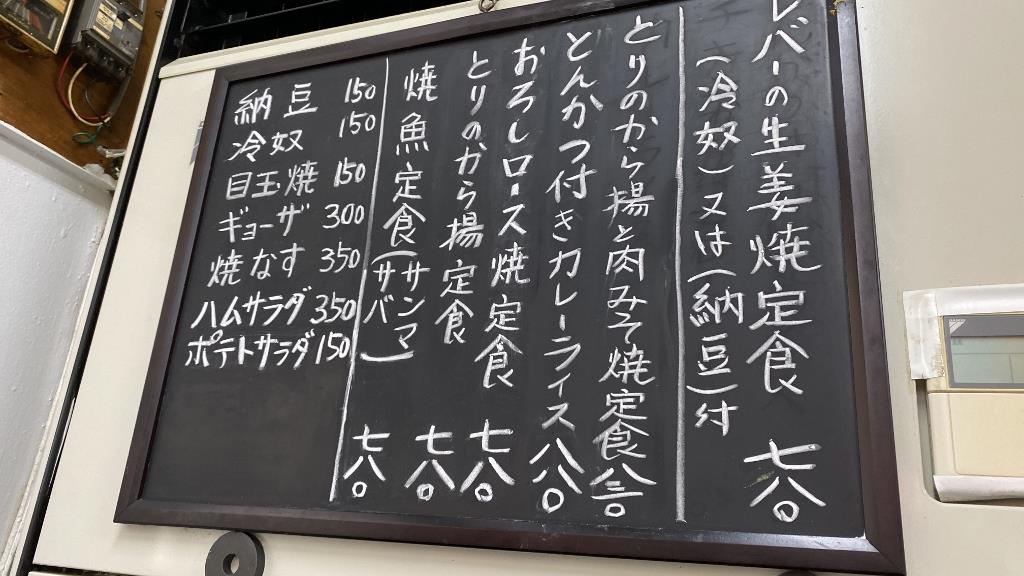 レバーの生姜焼定食 七八〇
(冷奴)又は(納豆)付
とりのから揚と肉みそ焼定食 八三〇
とんかつ付きカレーライス 八八〇
おろしロース焼定食 七八〇
とりのから揚定食 七八〇
焼魚定食(サンマ サバ) 七八〇
納豆 150
冷奴 150
目玉焼 150
ギョーザ 300
焼なす 350
ハムサラダ 350
ポテトサラダ 150
DAIKIN